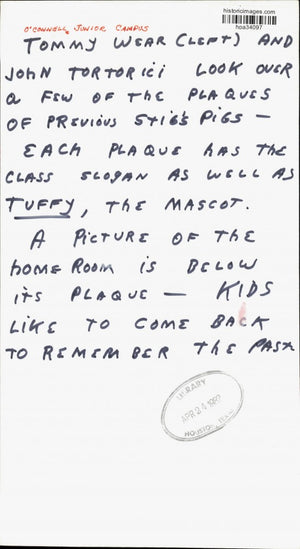 historicimages.com
hoa34097
O'CONNELL, JUNIOR CAMPUS
TOMMY WEAR (LEFT) AND
JOHN TORTORICI LOOK OVER
A FEW OF THE PLAQUES
OF PREVIOUS STIG'S PIGS —
EACH PLAQUE HAS THE
CLASS SLOGAN AS WELL AS
TUFFY, THE MASCOT.
A PICTURE OF THE
HOME ROOM IS BELOW
ITS PLAQUE — KIDS
LIKE TO COME BACK
TO REMEMBER THE PAST
LIBRARY
APR 24 1992
HOUSTON